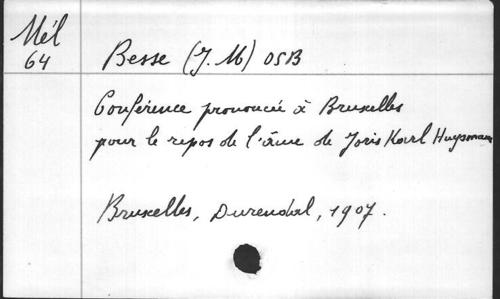 Mél
64
Besse (J. M) OSB
Conférence prononcée à Bruxelles
pour le repos de l'âme de Joris Karl Huysmans
Bruxelles, Durendal, 1907.